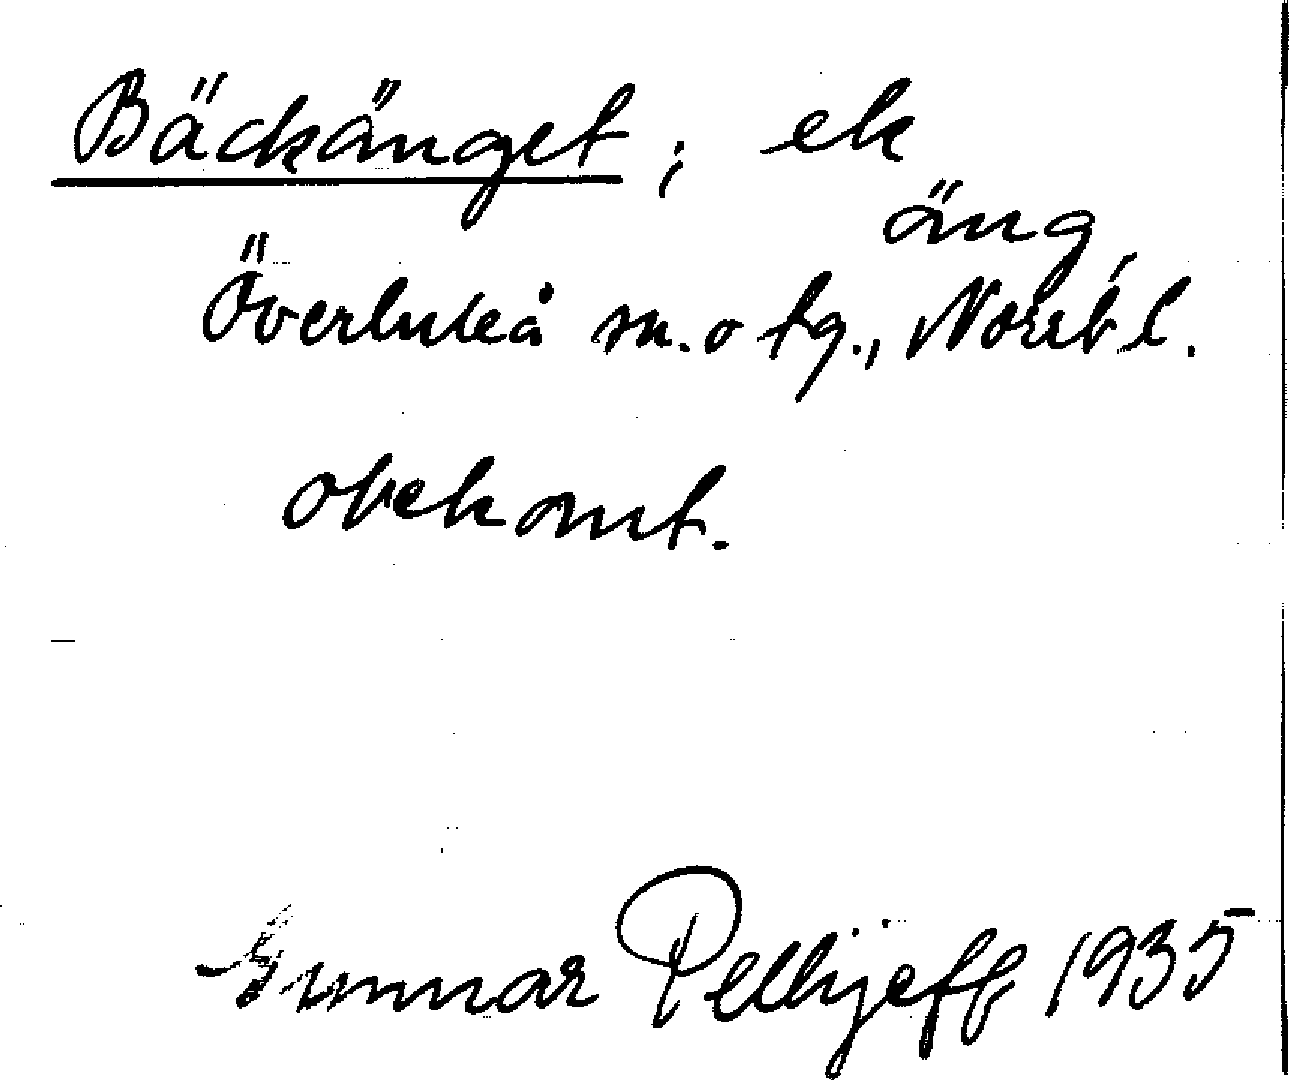 Bäckänget; ek
äng
Överluleå sn. o tg., Norrb. l.
obekant.
Gunnar Pellijeff 1935